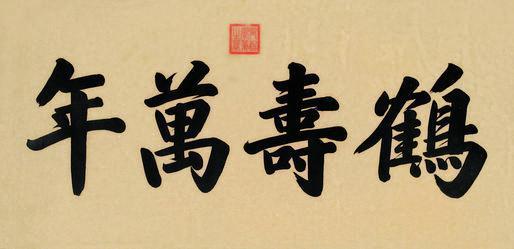 鶴壽萬年